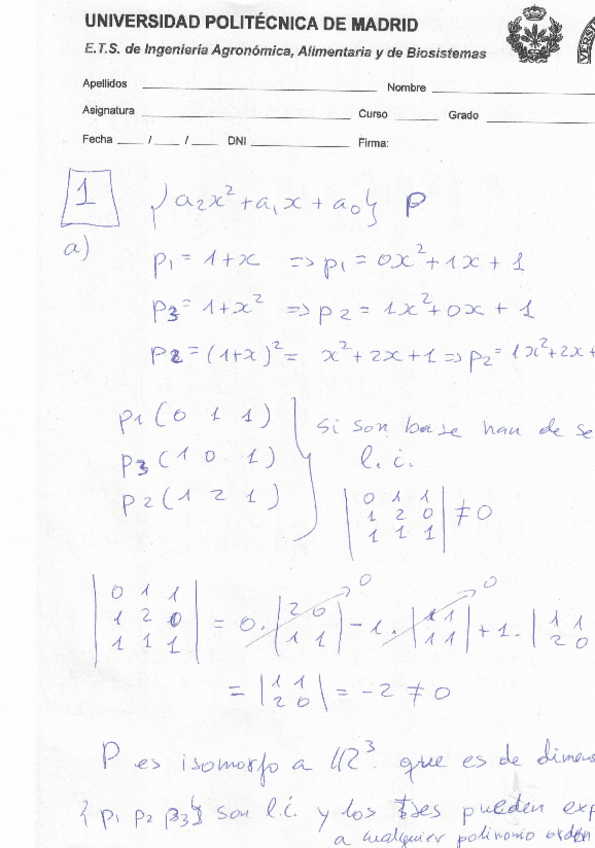 UNIVERSIDAD POLITÉCNICA DE MADRID
E.T.S. de Ingeniería Agronómica, Alimentaria y de Biosistemas
Apellidos Nombre
Asignatura Curso Grado
Fecha / / DNI Firma:
1 {a₂x² + a₁x + a₀} P
a)
p₁ = 1+x => p₁ = 0x² + 1x + 1
p3 = 1+x² => p2 = 1x² + 0x + 1
p2 = (1+x)² = x² + 2x + 1 => p₂ = 1x² + 2x +
p1 (0 1 1)
p3 (1 0 1)
p2 (1 2 1)
si son base han de se
l. i.
|0 1 1|
|1 2 0| ≠ 0
|1 1 1|
|0 1 1|
|1 2 0| = 0 · |2 0| - 1 · |1 1| + 1 · |1 1
|1 1 1| |1 1| |1 1| 2 0
0 0
= |1 1| = -2 ≠ 0
|2 0|
P es isomorfo a ℝ³ que es de dimens
{p1 p2 p3} son l.i. y los tres pueden exp
a cualquier polinomio orden